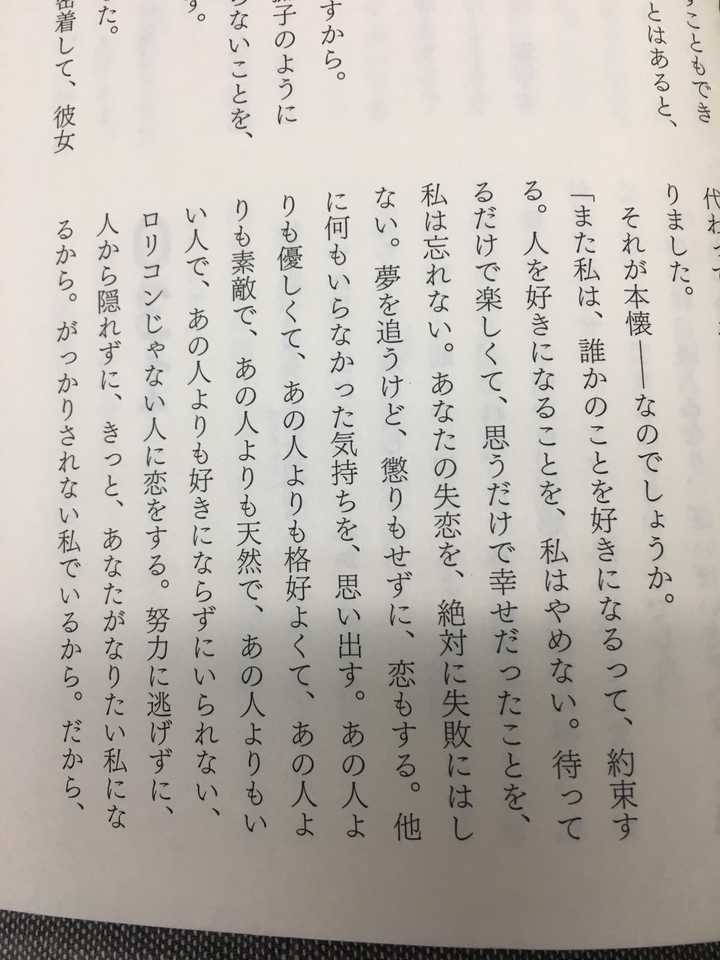 すこともでき
とはあると、
すから。
子のように
らないことを、
す。
た。
密着して、彼女
代わって
りました。
それが本懐――なのでしょうか。
「また私は、誰かのことを好きになるって、約束す
る。人を好きになることを、私はやめない。待って
るだけで楽しくて、思うだけで幸せだったことを、
私は忘れない。あなたの失恋を、絶対に失敗にはし
ない。夢を追うけど、懲りもせずに、恋もする。他
に何もいらなかった気持ちを、思い出す。あの人よ
りも優しくて、あの人よりも格好よくて、あの人よ
りも素敵で、あの人よりも天然で、あの人よりもい
い人で、あの人よりも好きにならずにいられない、
ロリコンじゃない人に恋をする。努力に逃げずに、
人から隠れずに、きっと、あなたがなりたい私にな
るから。がっかりされない私でいるから。だから、